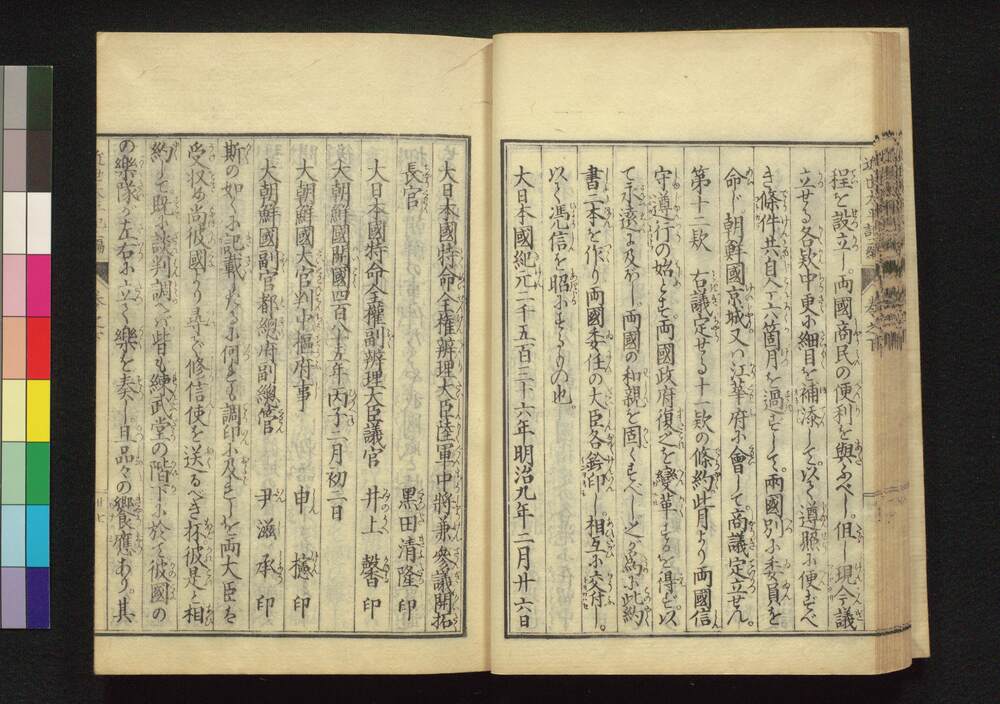 程を設立し両國商民の便利を與ふべし但し現今議
立せる各欵中更に細目を補添して以て遵照に便すべ
き條件共自今六箇月を過ずして両國別に委員を
命じ朝鮮國京城又ハ江華府に會して商議定立せん
第十二欵 右議定せる十一欵の條約此月より両國信
守遵行の始とす両國政府復之を變革するを得ず以
て永遠に及ぼし両國の和親を固くすべし之が為に此約
書二本を作り両國委任の大臣各鈐印し相互に交付し
以て憑信を昭にするもの也
大日本國紀元二千五百三十六年明治九年二月廿六日
大日本國特命全權辨理大臣陸軍中將兼參議開拓
長官 黒田清隆 印
大日本國特命副全權辨理大臣議官 井上馨 印
大朝鮮國開國四百八十五年丙子二月初二日
大朝鮮國大官判中樞府事 申櫶 印
大朝鮮國副官都總府副總官 尹滋承 印
斯の如くに記載したるに何とも調印に及ましを両大臣を
受収め尚彼國より尋で修信使を送るべき抔彼是と相
約して既に談判調へバ皆も練武堂の階下に於て彼國の
の樂隊が左右に立て樂を奏し且品々の饗應あり其
廿七